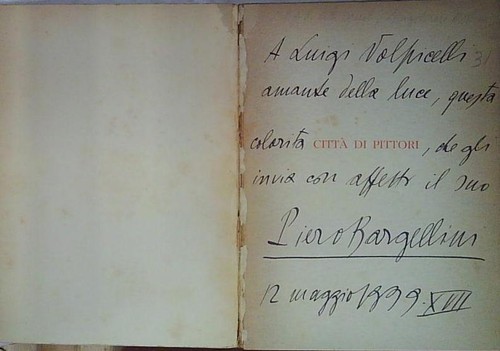 A Luigi Volpicelli
amante della luce, questa
colorita CITTÀ DI PITTORI, che gli
invia con affetto il suo
Piero Bargellini
12 maggio 1939. XVII